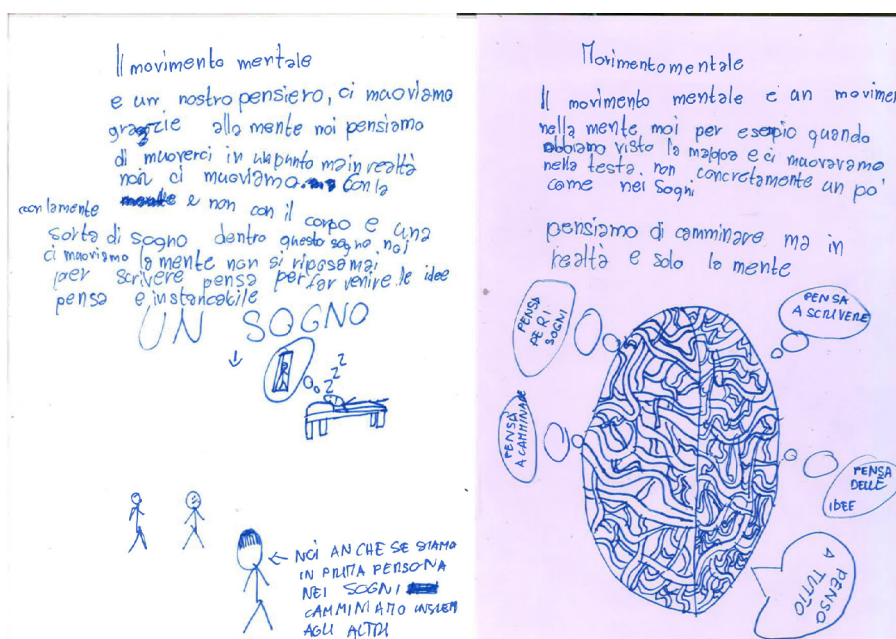 Il movimento mentale
e un nostro pensiero, ci muoviamo
grazzie alla mente noi pensiamo
di muoverci in un punto ma in realtà
non ci muoviamo con la
con la mente e non con il corpo e una
sorta di sogno dentro questo sogno noi
ci muoviamo la mente non si riposa mai
per scrivere pensa per far venire le idee
pensa e instancabile
UN SOGNO
zzzz
NOI ANCHE SE SIAMO
IN PRIMA PERSONA
NEI SOGNI
CAMMINIAMO INSIEM
AGLI ALTRI
Movimento mentale
Il movimento mentale e un movimen
nella mente, noi per esempio quando
abbiamo visto la mappa e ci muovavamo
nella testa. non concretamente un po'
come nei sogni
pensiamo di camminare ma in
realtà e solo la mente
PENSA
PER I
SOGNI
PENSA
A SCRIVERE
PENSA
A CAMMINARE
PENSA
DELLE
IDEE
PENSO
A TUTTO